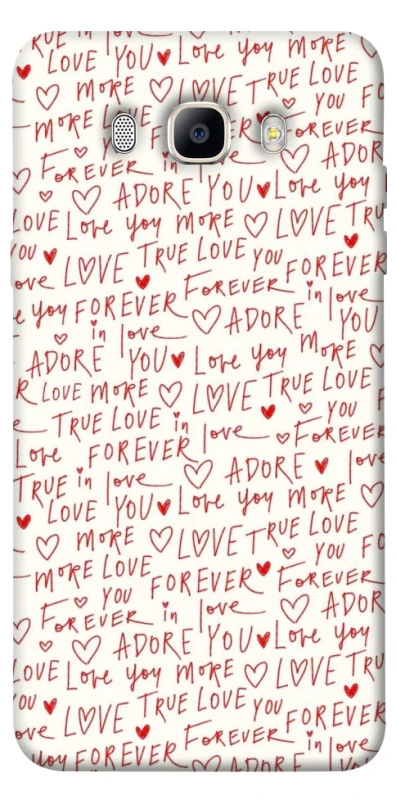 TRUE in love
LOVE YOU Love you MORE
MORE LOVE TRUE LOVE
MORE LOVE YOU FO
FOREVER FOREVER
FOREVER in love
ADORE YOU Love you
LOVE Love you MORE LOVE TRU
YOU TRUE LOVE YOU FOREVER
ove LOVE FOREVER in love
e you FOREVER ADORE YOU
in love
ADORE YOU Love you MORE
R LOVE MORE LOVE TRUE LOVE
TRUE LOVE in love YOU
Love FOREVER FOREVER
TRUE in love ADORE love
LOVE YOU Love you MORE
MORE LOVE TRUE LOVE
MORE LOVE YOU FO
YOU FOREVER FOREVER
FOREVER in love ADOR
ADORE YOU Love you
LOVE Love you MORE LOVE TRU
YOU TRUE LOVE YOU FOREVER
ove LOVE FOREVER in love
you FOREVER